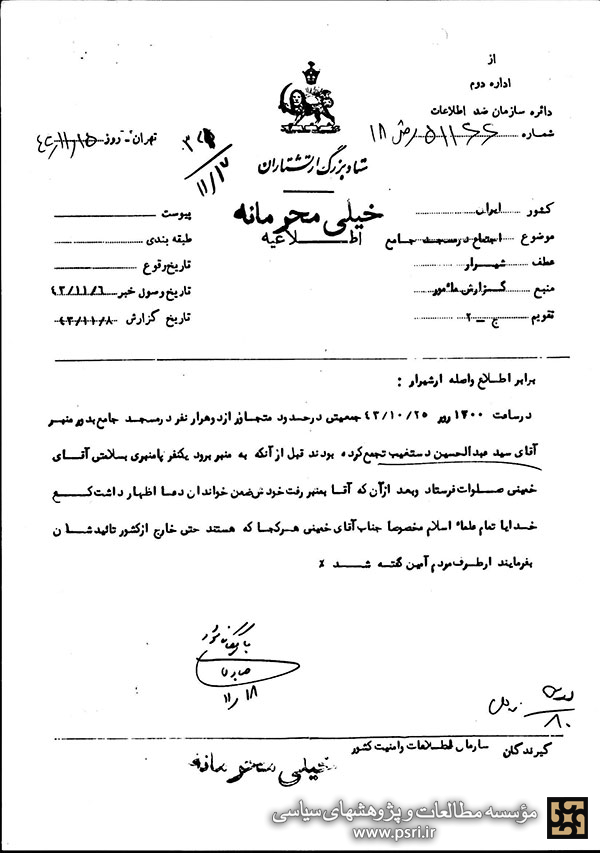 از
اداره دوم
دائره سازمان ضد اطلاعات
شماره ۵۱۱۶۶
تهران - روز ۱۵-۱۱-
ستاد بزرگ ارتشتاران
۱۱/۱۳
خیلی محرمانه
اطلاعیه
کشور ایران
موضوع اجتماع در مسجد جامع
عطف شیراز
منبع گزارش مأمور
تقویم ج - ۲
پیوست
طبقه بندی
تاریخ رقوع
تاریخ وصول خبر ۴۳/۱۱/۶
تاریخ گزارش ۴۳/۱۱/۸
برابر اطلاع واصله از شیراز :
در ساعت ۱۲۰۰ روز ۴۳/۱۰/۲۵ جمعیتی در حدود متجاوز از دو هزار نفر در مسجد جامع بدور منبر
آقای سید عبدالحسین دستغیب تجمع کرده بودند قبل از آنکه به منبر برود یکنفر پامنبری بسلامتی آقای
خمینی صلوات فرستاد وبعد از آن که آقا بمنبر رفت خودش ضمن خواندان دعا اظهار داشت کع
خدایا تمام علماء اسلام مخصوصا جناب آقای خمینی هر کجا که هستند حتی خارج از کشور تائید شان
بفرمایند از طرف مردم آمین گفته شد ٪
۱۱/۱۸
۸۰
گیرندگان سازمان اطلاعات وامنیت کشور
خیلی محرمانه
مؤسسه مطالعات و پژوهشهای سیاسی
www.psri.ir